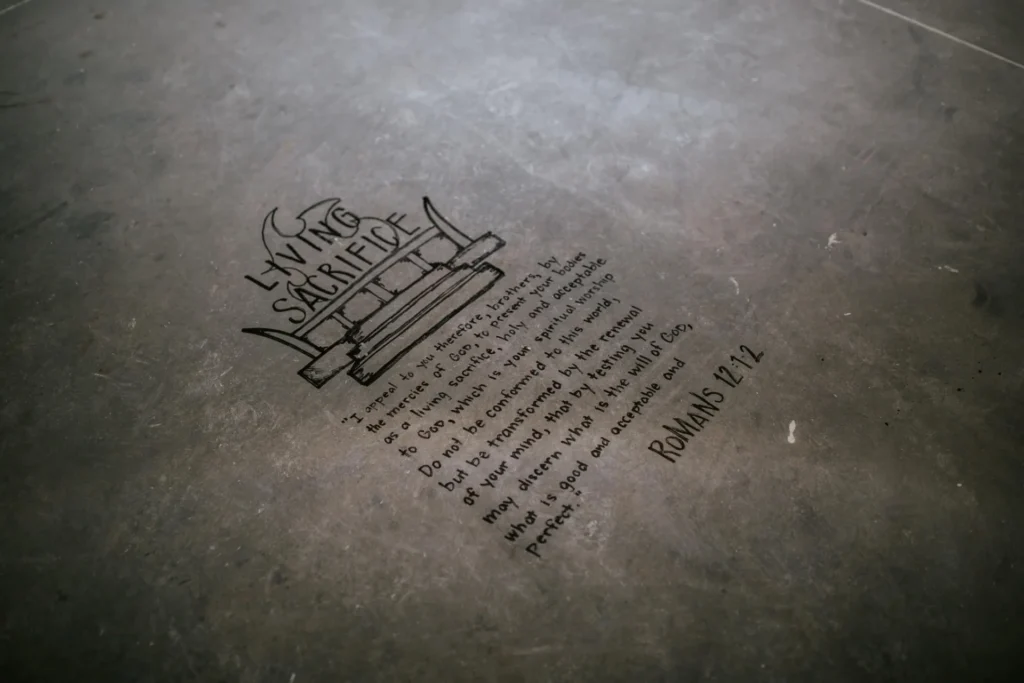 LIVING
SACRIFICE
"I appeal to you therefore, brothers, by
the mercies of God, to present your bodies
as a living sacrifice, holy and acceptable
to God, which is your spiritual worship
Do not be conformed to this world,
but be transformed by the renewal
of your mind, that by testing you
may discern what is the will of God,
what is good and acceptable and
perfect."
ROMANS 12:1-2